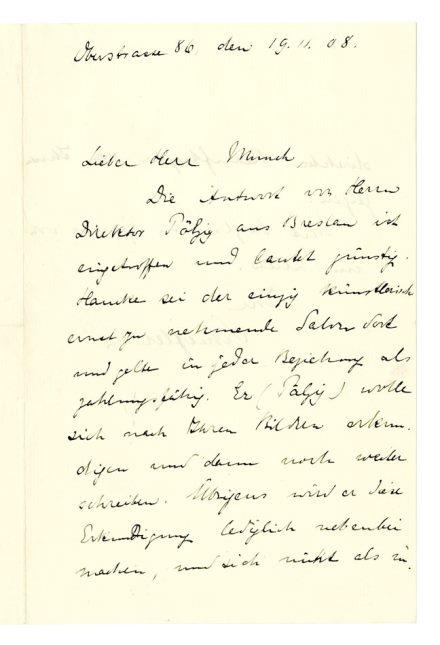 Oberstrasse 86, den 19.11.08.
Lieber Herr Munch
Die Antwort von Herrn
Direktor Pölzig aus Breslau ist
eingetroffen und lautet günstig.
Hancke sei der einzig künstlerisch
ernst zu nehmende Salon dort
und gelte in jeder Beziehung als
zahlungsfähig. Er (Pölzig) wolle
sich nach Ihren Bildern erkun-
digen und dann noch weiter
schreiben. Übrigens wird er diese
Erkundigung lediglich nebenbei
machen, und sich nicht als in